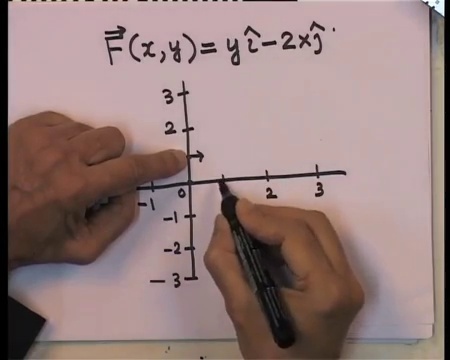 F⃗(x,y) = yî − 2xĵ
3
2
-1 0 2 3
-1
-2
-3